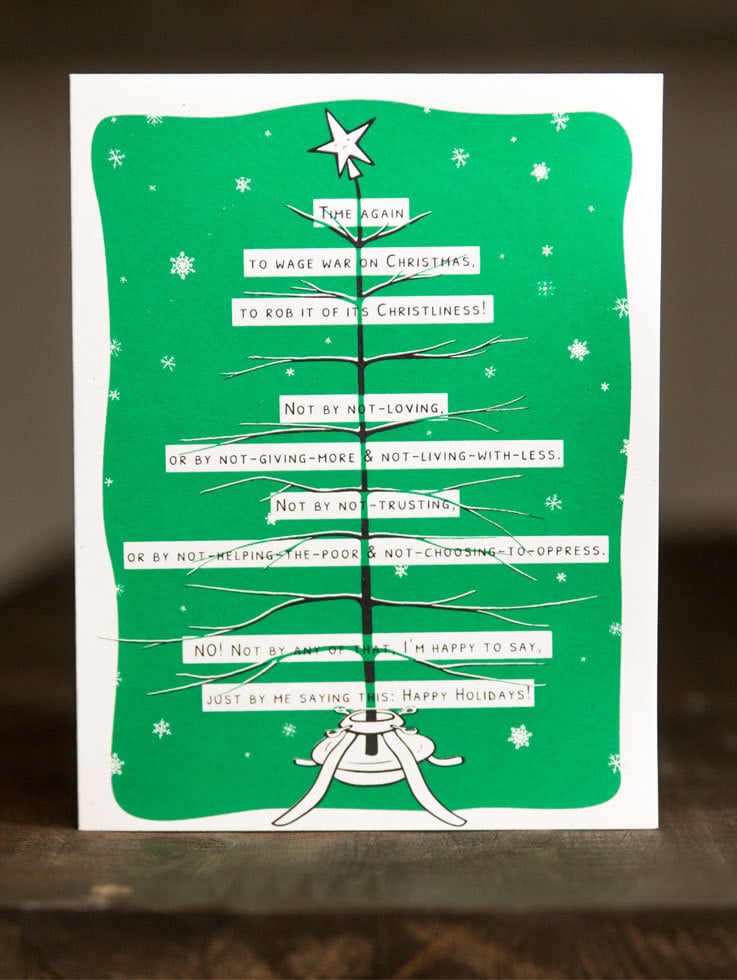 Time again
to wage war on Christmas,
to rob it of its Christliness!
Not by not-loving,
or by not-giving-more & not-living-with-less.
Not by not-trusting,
or by not-helping-the-poor & not-choosing-to-oppress.
NO! Not by any of that, I'm happy to say,
just by me saying this: Happy Holidays!